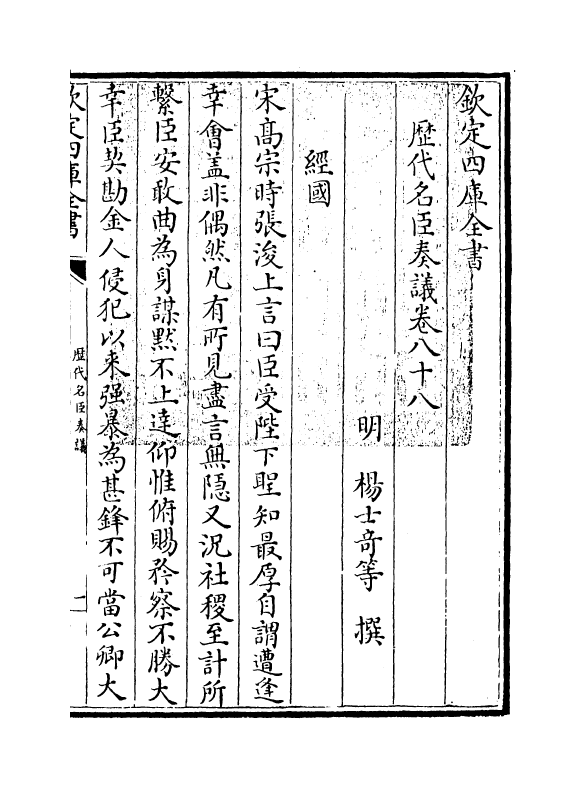 欽定四庫全書
歴代名臣奏議卷八十八
明 楊士奇等 撰
經國
宋髙宗時張浚上言曰臣受陛下聖知最厚自謂遭逢
幸會盖非偶然凡有所見盡言無隠又況社稷至計所
繫臣安敢曲為身謀黙不上達仰惟俯賜矜察不勝大
幸臣契勘金人侵犯以来强暴為甚鋒不可當公卿大
欽定四庫全書
歴代名臣奏議
一